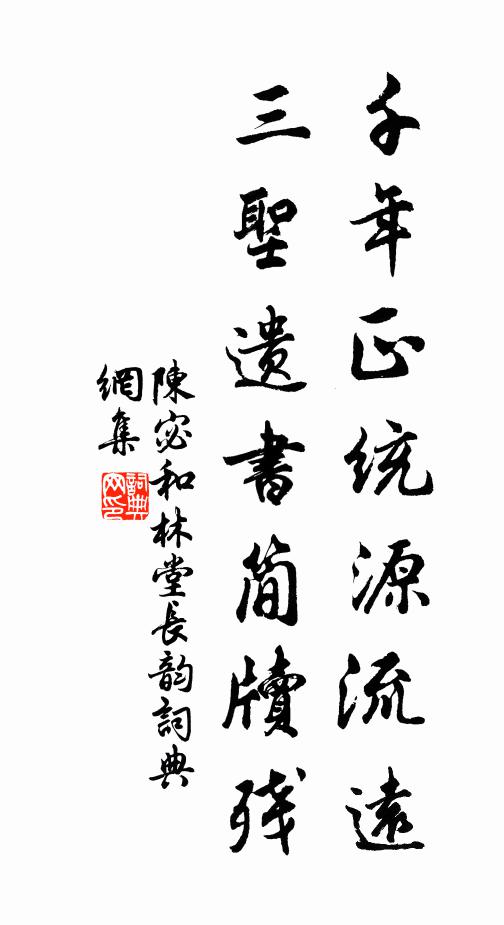 千年正统源流遠
三聖遺書简牘残
陳宓和林堂長韵詞典
網集
詞典网印